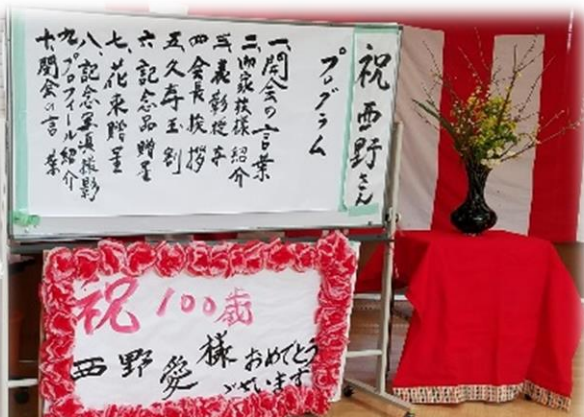 祝 西野さん
プログラム
一、開会の言葉
二、御家族様紹介
三、表彰授与
四 会長挨拶
五 久寿玉割
六 記念品贈呈
七、花束贈呈
八、記念写真撮影
九、プロフィール紹介
十、閉会の言葉
祝 100歳
西野 愛 様 おめでとう
ございます